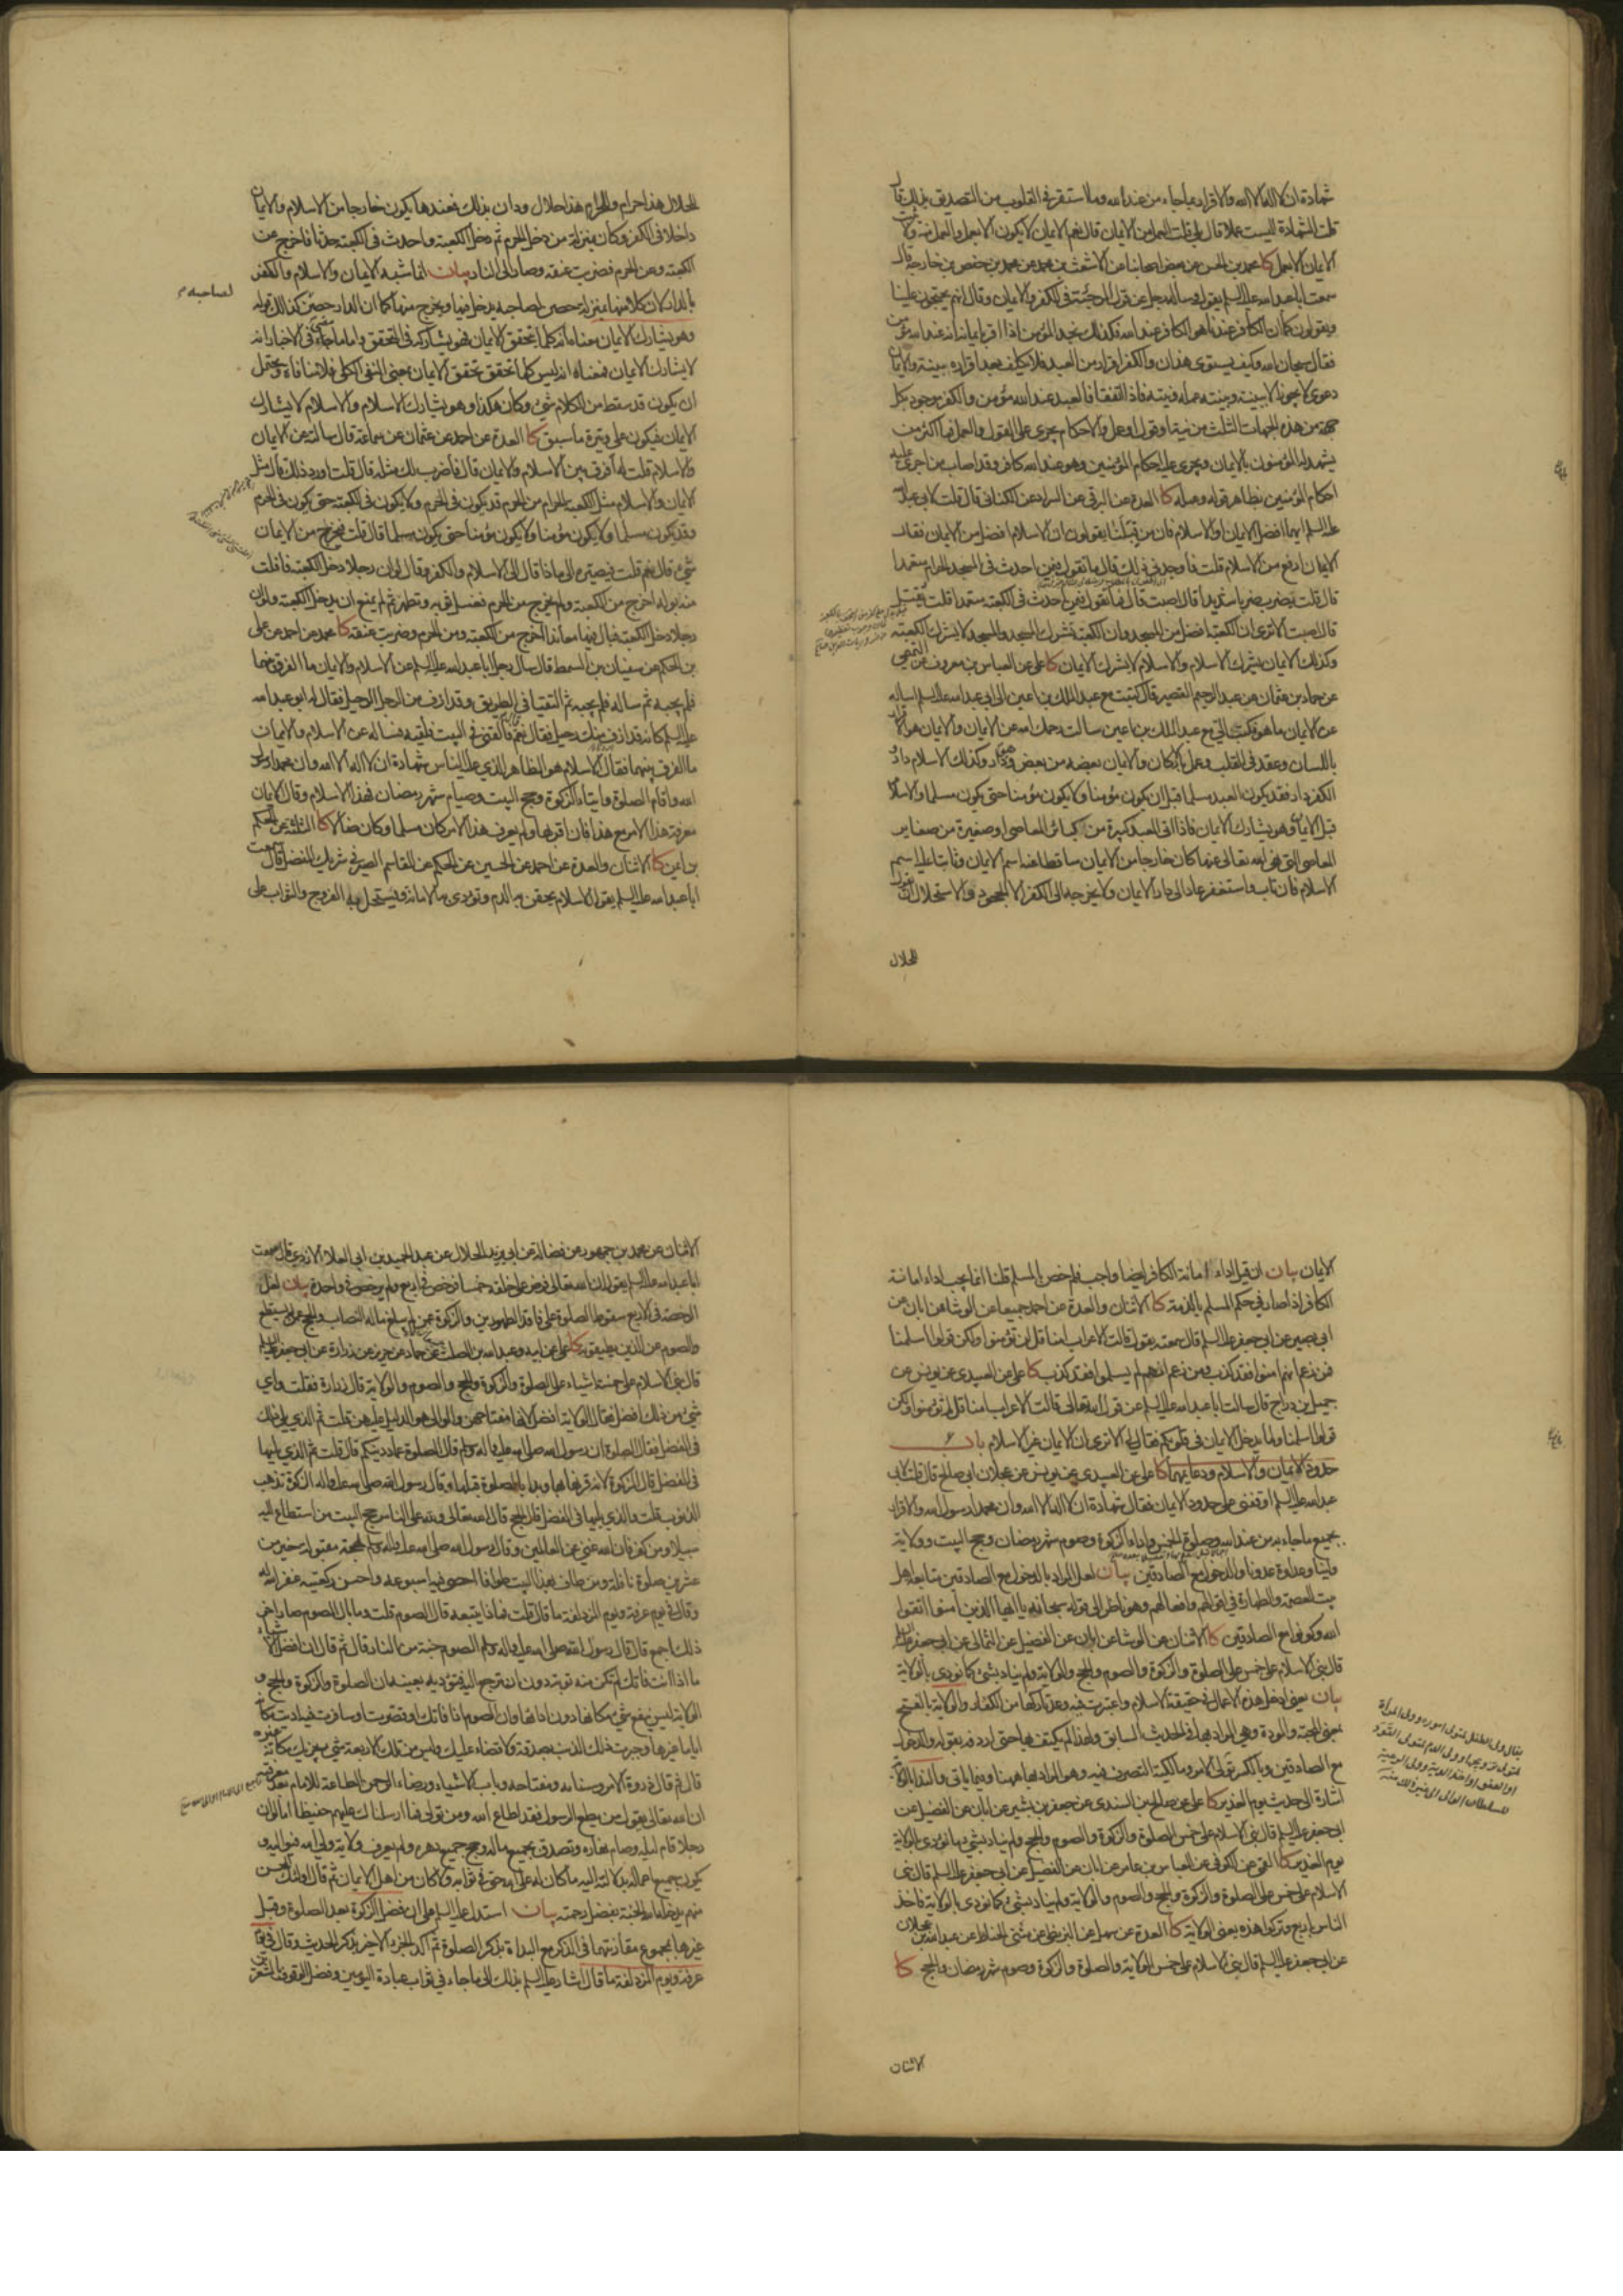 شهادة ان لا اله الا الله والاقرار بما جاء من عند الله وما استقر في القلوب من التصديق بذلك قال
قلت الشهادة اليست عملا قال بلى قلت العمل من الايمان قال نعم الايمان لا يكون الا بعمل والعمل منه ولا يثبت
الايمان الا بعمل كا محمد بن الحسن عن بعض اصحابنا عن الاشعث بن محمد عن محمد بن حفص بن خارجة قال
سمعت ابا عبد الله عليه السلم يقول وساله رجل عن قول المرجئة في الكفر والايمان وقال انهم يحتجون علينا
ويقولون كما ان الكافر عندنا هو الكافر عند الله فكذلك نجد المؤمن اذا اقر بايمانه انه عند الله مؤمن
فقال سبحان الله وكيف يستوي هذان والكفر اقرار من العبد فلا يكلف بعد اقراره ببينة والايمان
دعوى لا يجوز الا ببينة وبينته عمله ونيته فاذا اتفقتا فالعبد عند الله مؤمن والكفر موجود بكل
جهة من هذه الجهات الثلث من نية او قول او عمل والاحكام يجري على القول والعمل فما اكثر من
يشهد له المؤمنون بالايمان ويجري عليه احكام المؤمنين وهو عند الله كافر وقد اصاب من اجرى عليه
احكام المؤمنين بظاهر قوله وعمله كا العدة عن البرقي عن السراد عن الكناني قال قلت لابي عبد الله
عليه السلم ايهما افضل الايمان او الاسلام فان من قبلنا يقولون ان الاسلام افضل من الايمان فقال
الايمان ارفع من الاسلام قلت فاوجدني ذلك قال ما تقول فيمن احدث في المسجد الحرام متعمدا
قال قلت يضرب ضربا شديدا قال اصبت قال فما تقول فيمن احدث في الكعبة متعمدا قلت يقتل
قال اصبت الا ترى ان الكعبة افضل من المسجد وان الكعبة تشرك المسجد والمسجد لا يشرك الكعبة
وكذلك الايمان يشرك الاسلام والاسلام لا يشرك الايمان كا علي عن العباس بن معروف عن التميمي
عن حماد بن عثمان عن عبد الرحيم القصير قال كتبت مع عبد الملك بن اعين الى ابي عبد الله عليه السلم اساله
عن الايمان ما هو فكتب الي مع عبد الملك بن اعين سالت رحمك الله عن الايمان والايمان هو الاقرار
باللسان وعقد في القلب وعمل بالاركان والايمان بعضه من بعض وهو دار وكذلك الاسلام دار و
الكفر دار فقد يكون العبد مسلما قبل ان يكون مؤمنا ولا يكون مؤمنا حتى يكون مسلما والاسلام
قبل الايمان وهو يشارك الايمان فاذا اتى العبد كبيرة من كبائر المعاصي او صغيرة من صغاير
المعاصي التي نهى الله تعالى عنها كان خارجا من الايمان ساقطا عنه اسم الايمان وثابتا عليه اسم
الاسلام فان تاب واستغفر عاد الى دار الايمان ولا يخرجه الى الكفر الا الجحود والاستحلال ان يقول
للحلال
للحلال هذا حرام وللحرام هذا حلال ودان بذلك فعندها يكون خارجا من الاسلام والايمان
داخلا في الكفر وكان بمنزلة من دخل الحرم ثم دخل الكعبة واحدث في الكعبة حدثا فاخرج عن
الكعبة وعن الحرم فضربت عنقه وصار الى النار بيان انما شبه الايمان والاسلام والكفر
بالدار لان كلا منها بمنزلة حصن لصاحبه يدخل فيها ويخرج منها كما ان الدار حصن كذلك قوله
لصاحبه
وهو يشارك الايمان معناه انه كلما تحقق الايمان فهو يشاركه في التحقق واما ما مضى في الاخبار انه
لا يشارك الايمان فمعناه انه ليس كلما تحقق تحقق الايمان بمعنى النفي الكلي فلا منافاة ويحتمل
ان يكون قد سقط من الكلام شيء وكان هكذا وهو يشارك الاسلام والاسلام لا يشارك
الايمان فيكون على وتيرة ما سبق كا العدة عن احمد عن عثمان عن سماعة قال سالته عن الايمان
والاسلام قلت له افرق بين الاسلام والايمان قال فاضرب لك مثله قال قلت اورد ذلك قال مثل
الايمان والاسلام مثل الكعبة الحرام من الحرم قد يكون في الحرم ولا يكون في الكعبة حتى يكون في الحرم
وقد يكون مسلما ولا يكون مؤمنا ولا يكون مؤمنا حتى يكون مسلما قال قلت فيخرج من الايمان
شيء قال نعم قلت فيصيره الى ماذا قال الى الاسلام والكفر وقال لو ان رجلا دخل الكعبة فافلت
منه بوله اخرج من الكعبة ولم يخرج من الحرم فغسل ثوبه وتطهر ثم لم يمنع ان يدخل الكعبة ولو ان
رجلا دخل الكعبة فبال فيها معاندا اخرج من الكعبة ومن الحرم وضربت عنقه كا محمد عن احمد عن علي
بن الحكم عن سفيان بن السمط قال سال رجل ابا عبد الله عليه السلم عن الاسلام والايمان ما الفرق بينهما
فلم يجبه ثم ساله فلم يجبه ثم التقيا في الطريق وقد ازف من الرجل الرحيل فقال له ابو عبد الله
عليه السلم كانه قد ازف منك رحيل فقال نعم قال فالقني في البيت فلقيه فساله عن الاسلام والايمان
ما الفرق بينهما فقال الاسلام هو الظاهر الذي عليه الناس شهادة ان لا اله الا الله وان محمدا رسول
الله واقام الصلوة وايتاء الزكوة وحج البيت وصيام شهر رمضان فهذا الاسلام وقال الايمان
معرفة هذا الامر مع هذا فان اقر بها ولم يعرف هذا الامر كان مسلما وكان ضالا كا الثلثة عن الحكم
بن ايمن كا الاثنان والعدة عن احمد عن الحسين عن الحكم عن القاسم الصيرفي شريك المفضل قال سمعت
ابا عبد الله عليه السلم يقول الاسلام يحقن به الدم وتؤدى به الامانة ويستحل به الفروج والثواب على
الايمان بيان ان قيل اداء امانة الكافر ايضا واجب فلم خص المسلم قلنا انما يجب اداء امانة
الكافر اذا صار في حكم المسلم بالذمة كا الاثنان والعدة عن احمد جميعا عن الوشا عن ابان عن
ابي بصير عن ابي جعفر عليه السلم قال سمعته يقول قالت الاعراب امنا قل لم تؤمنوا ولكن قولوا اسلمنا
فمن زعم انهم امنوا فقد كذب ومن زعم انهم لم يسلموا فقد كذب كا علي عن العبيدي عن يونس عن
جميل بن دراج قال سالت ابا عبد الله عليه السلم عن قول الله تعالى قالت الاعراب امنا قل لم تؤمنوا ولكن
قولوا اسلمنا ولما يدخل الايمان في قلوبكم فقال لي الا ترى ان الايمان غير الاسلام باب
حدود الايمان والاسلام ودعائمهما كا علي عن العبيدي عن يونس عن عجلان ابي صالح قال قلت لابي
عبد الله عليه السلم اوقفني على حدود الايمان فقال شهادة ان لا اله الا الله وان محمدا رسول الله والاقرار
بجميع ما جاء به من عند الله وصلوة الخمس واداء الزكوة وصوم شهر رمضان وحج البيت وولاية
ولينا وعداوة عدونا والدخول مع الصادقين بيان لعل المراد بالدخول مع الصادقين متابعة اهل
بيت العصمة والطهارة في اقوالهم وافعالهم وهو ناظر الى قوله سبحانه يا ايها الذين امنوا اتقوا
الله وكونوا مع الصادقين كا الاثنان عن الوشا عن ابان عن الفضيل عن الثمالي عن ابي جعفر عليه السلم
قال بني الاسلام على خمس على الصلوة والزكوة والصوم والحج والولاية ولم يناد بشيء كما نودي بالولاية
بيان يعني ادخل هذه الاعمال في حقيقة الاسلام واعتبرت فيه وعد تاركها من الكفار والولاية بالفتح
بمعنى المحبة والمودة وهي المراد بها في الحديث السابق ولهذا لم يكتف بها حتى اردفه بقوله والدخول
مع الصادقين وبالكسر تولى الامر ومالكية التصرف فيه وهو المراد بها هاهنا وفيما ياتي والنداء بالولاية
اشارة الى حديث يوم الغدير كا علي عن صالح بن السندي عن جعفر بن بشير عن ابان عن الفضيل عن
ابي جعفر عليه السلم قال بني الاسلام على خمس الصلوة والزكوة والصوم والحج ولم يناد بشيء ما نودي بالولاية
يوم الغدير كا القمي عن الكوفي عن العباس بن عامر عن ابان عن الفضيل عن ابي جعفر عليه السلم قال بني
الاسلام على خمس على الصلوة والزكوة والحج والصوم والولاية ولم يناد بشيء كما نودي بالولاية فاخذ
الناس باربع وتركوا هذه يعني الولاية كا العدة عن سهل عن البزنطي عن مثنى الحناط عن عبد الله بن عجلان
عن ابي جعفر عليه السلم قال بني الاسلام على خمس الولاية والصلوة والزكوة وصوم شهر رمضان والحج كا
الاثنان
الاثنان عن محمد بن جمهور عن فضالة عن ابي زيد الحلال عن عبد الحميد بن ابي العلاء الازدي قال سمعت
ابا عبد الله عليه السلم يقول ان الله تعالى فرض على خلقه خمسا فرخص في اربع ولم يرخص في واحدة بيان لعل
الرخصة في الاربع سقوط الصلوة على فاقد الطهورين والزكوة عمن لم يبلغ ماله النصاب والحج عمن لم يستطع
والصوم عن الذين يطيقونه كا علي عن ابيه وعبد الله بن الصلت عن حماد عن حريز عن زرارة عن ابي جعفر عليه السلم
قال بني الاسلام على خمسة اشياء على الصلوة والزكوة والحج والصوم والولاية قال زرارة فقلت واي
شيء من ذلك افضل فقال الولاية افضل لانها مفتاحهن والوالي هو الدليل عليهن قلت ثم الذي يلي ذلك
في الفضل فقال الصلوة ان رسول الله صلى الله عليه واله وسلم قال الصلوة عماد دينكم قال قلت ثم الذي يليها
في الفضل قال الزكوة لانه قرنها بها وبدا بالصلوة قبلها وقال رسول الله صلى الله عليه واله الزكوة تذهب
الذنوب قلت والذي يليها في الفضل قال الحج قال الله تعالى ولله على الناس حج البيت من استطاع اليه
سبيلا ومن كفر فان الله غني عن العالمين وقال رسول الله صلى الله عليه واله وسلم لحجة مقبولة خير من
عشرين صلوة نافلة ومن طاف بهذا البيت طوافا احصى فيه اسبوعه واحسن ركعتيه غفر الله له
وقال في يوم عرفة ويوم المزدلفة ما قال قلت فماذا يتبعه قال الصوم قلت وما بال الصوم صار اخر
ذلك اجمع قال قال رسول الله صلى الله عليه واله وسلم الصوم جنة من النار قال ثم قال ان افضل الاشياء
ما اذا انت فاتك لم تكن منه توبة دون ان ترجع اليه فتؤديه بعينه ان الصلوة والزكوة والحج و
الولاية ليس يقع شيء مكانها دون ادائها وان الصوم اذا فاتك او قصرت او سافرت فيه اديت مكانه
اياما غيرها وجبرت ذلك الذنب بصدقة ولا قضاء عليك وليس من تلك الاربعة شيء يجزيك مكانه غيره
قال ثم قال ذروة الامر وسنامه ومفتاحه وباب الاشياء ورضاء الرحمن الطاعة للامام بعد معرفته
ان الله تعالى يقول من يطع الرسول فقد اطاع الله ومن تولى فما ارسلناك عليهم حفيظا اما لو ان
رجلا قام ليله وصام نهاره وتصدق بجميع ماله وحج جميع دهره ولم يعرف ولاية ولي الله فيواليه و
يكون جميع اعماله بدلالته اليه ما كان له على الله حق في ثوابه ولا كان من اهل الايمان ثم قال اولئك المحسن
منهم يدخله الله الجنة بفضل رحمته بيان استدل عليه السلم على ان فضل الزكوة بعد الصلوة وقبل
غيرها بمجموع مقارنتهما في الذكر مع البداءة بذكر الصلوة ثم اكد الجزء الاخير بذكر الحديث وقال في يوم
عرفة ويوم المزدلفة ما قال اشار عليه السلم بذلك الى ما جاء في ثواب عبادة اليومين وفضل الوقوف بالمشعر